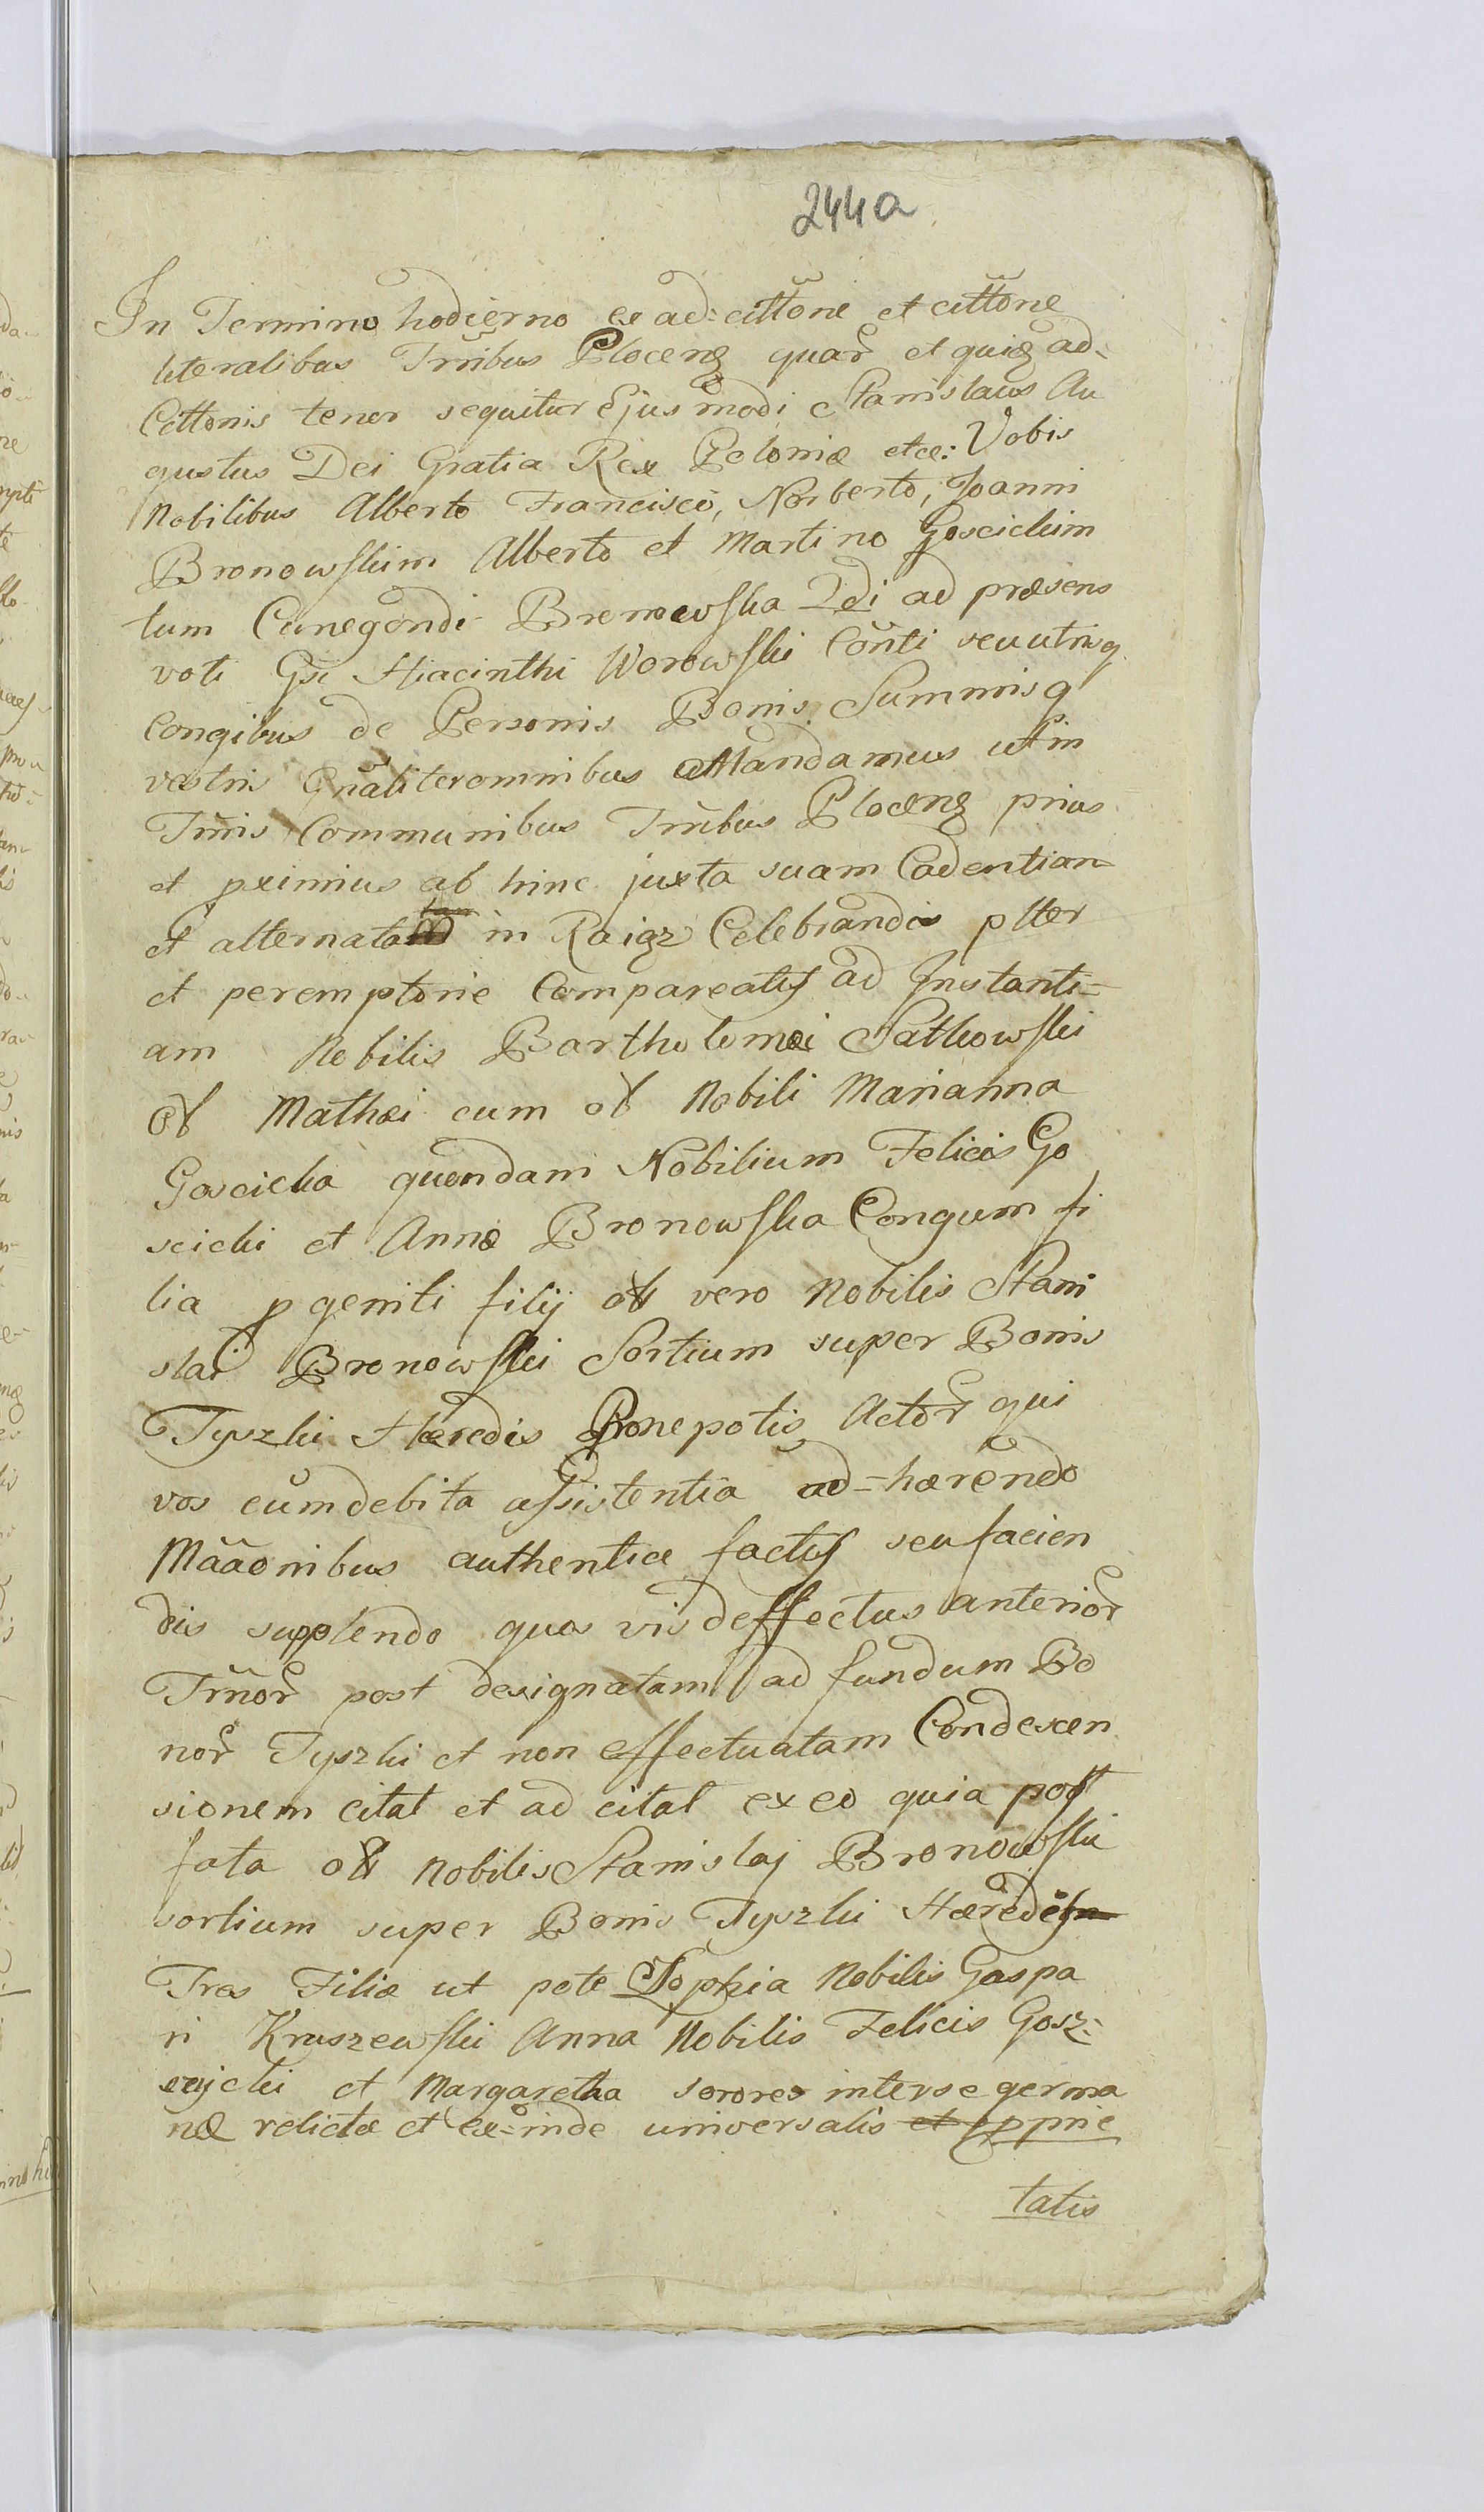 244a
In Termino hodierno ex ad: cittõne et cittõne
literalibus Trribus Plocen quar et quig ad:
Cittonis tenor sequitur Ejusmodi Stanislaus Au
gustus Dei Gratia Rex Poloniæ etce: Vobis
Nobilibus Alberto Francisco, Norberto, Joanni
Bronowskim Alberto et Martino Goscickim
tum Cunegondi Bronowska 2di ad præsens
voti Gsi Hiacinthi Worowski Cõnti seu utrisq
Congibus de Personis Bonis Summisq
vestris Gnãliter omnibus Mandamus ut in
Trmis Communibus Trribus Plocen prius
et pximius ab hinc juxta suam Cadentian
et alternatam in Raigz Celebrandis ptter
et peremptorie Compareatis ad Instanti=
am Nobilis Bartholomæi Satkowski
ol Mathæi cum ol Nobili Marianna
Goscicka quondam Nobilium Felicis Go
scicki et Annæ Bronowska Congum fi
lia pgeniti filij ol vero Nobilis Stani
slai Bronowski Sortium super Bonis
Tyszki Hæredis Pronepotis Actor qui
vos cum debita assistentia ad=hærendo
Mããonibus authentice factis seu facien
dis supplendo quas vis deffectus anterior
Trñor post designatam ad fundum Bo
nor Tyszki et non effectuatam Condescen
sionem citat et ad citat ex eo quia post
fata ol Nobilis Stanislaj Bronowski
sortium super Bonis Tyszki Hæredis
Tres Filiæ ut pote Sophia Nobilis Gaspa
ri Kruszewski Anna Nobilis Felicis Gosz:
czycki et Margaretha sorores interse germa
næ relictæ et ex=inde universalis et pprie
tatis